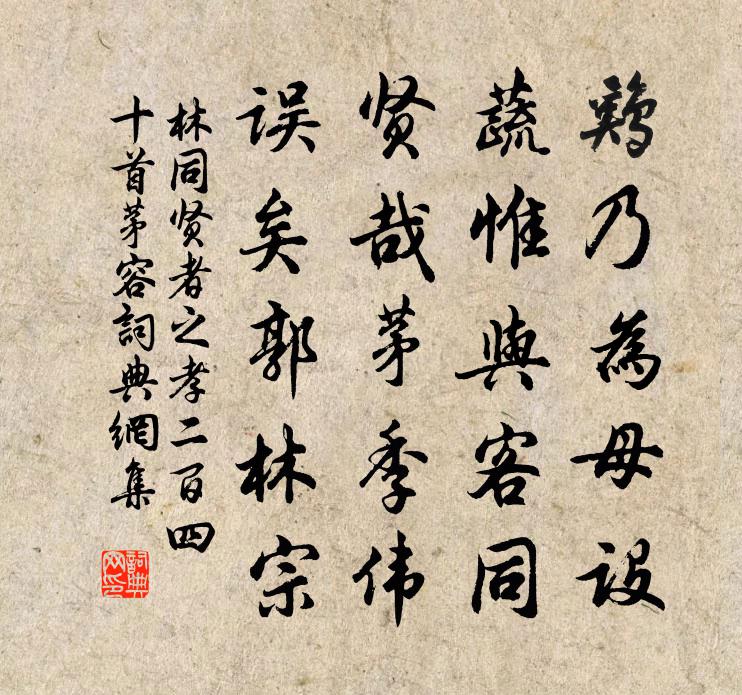 鷄乃為母設
蔬惟與客同
贤哉茅季伟
误矣郭林宗
林同贤者之孝二百四
十首茅容詞典網集
詞典网印